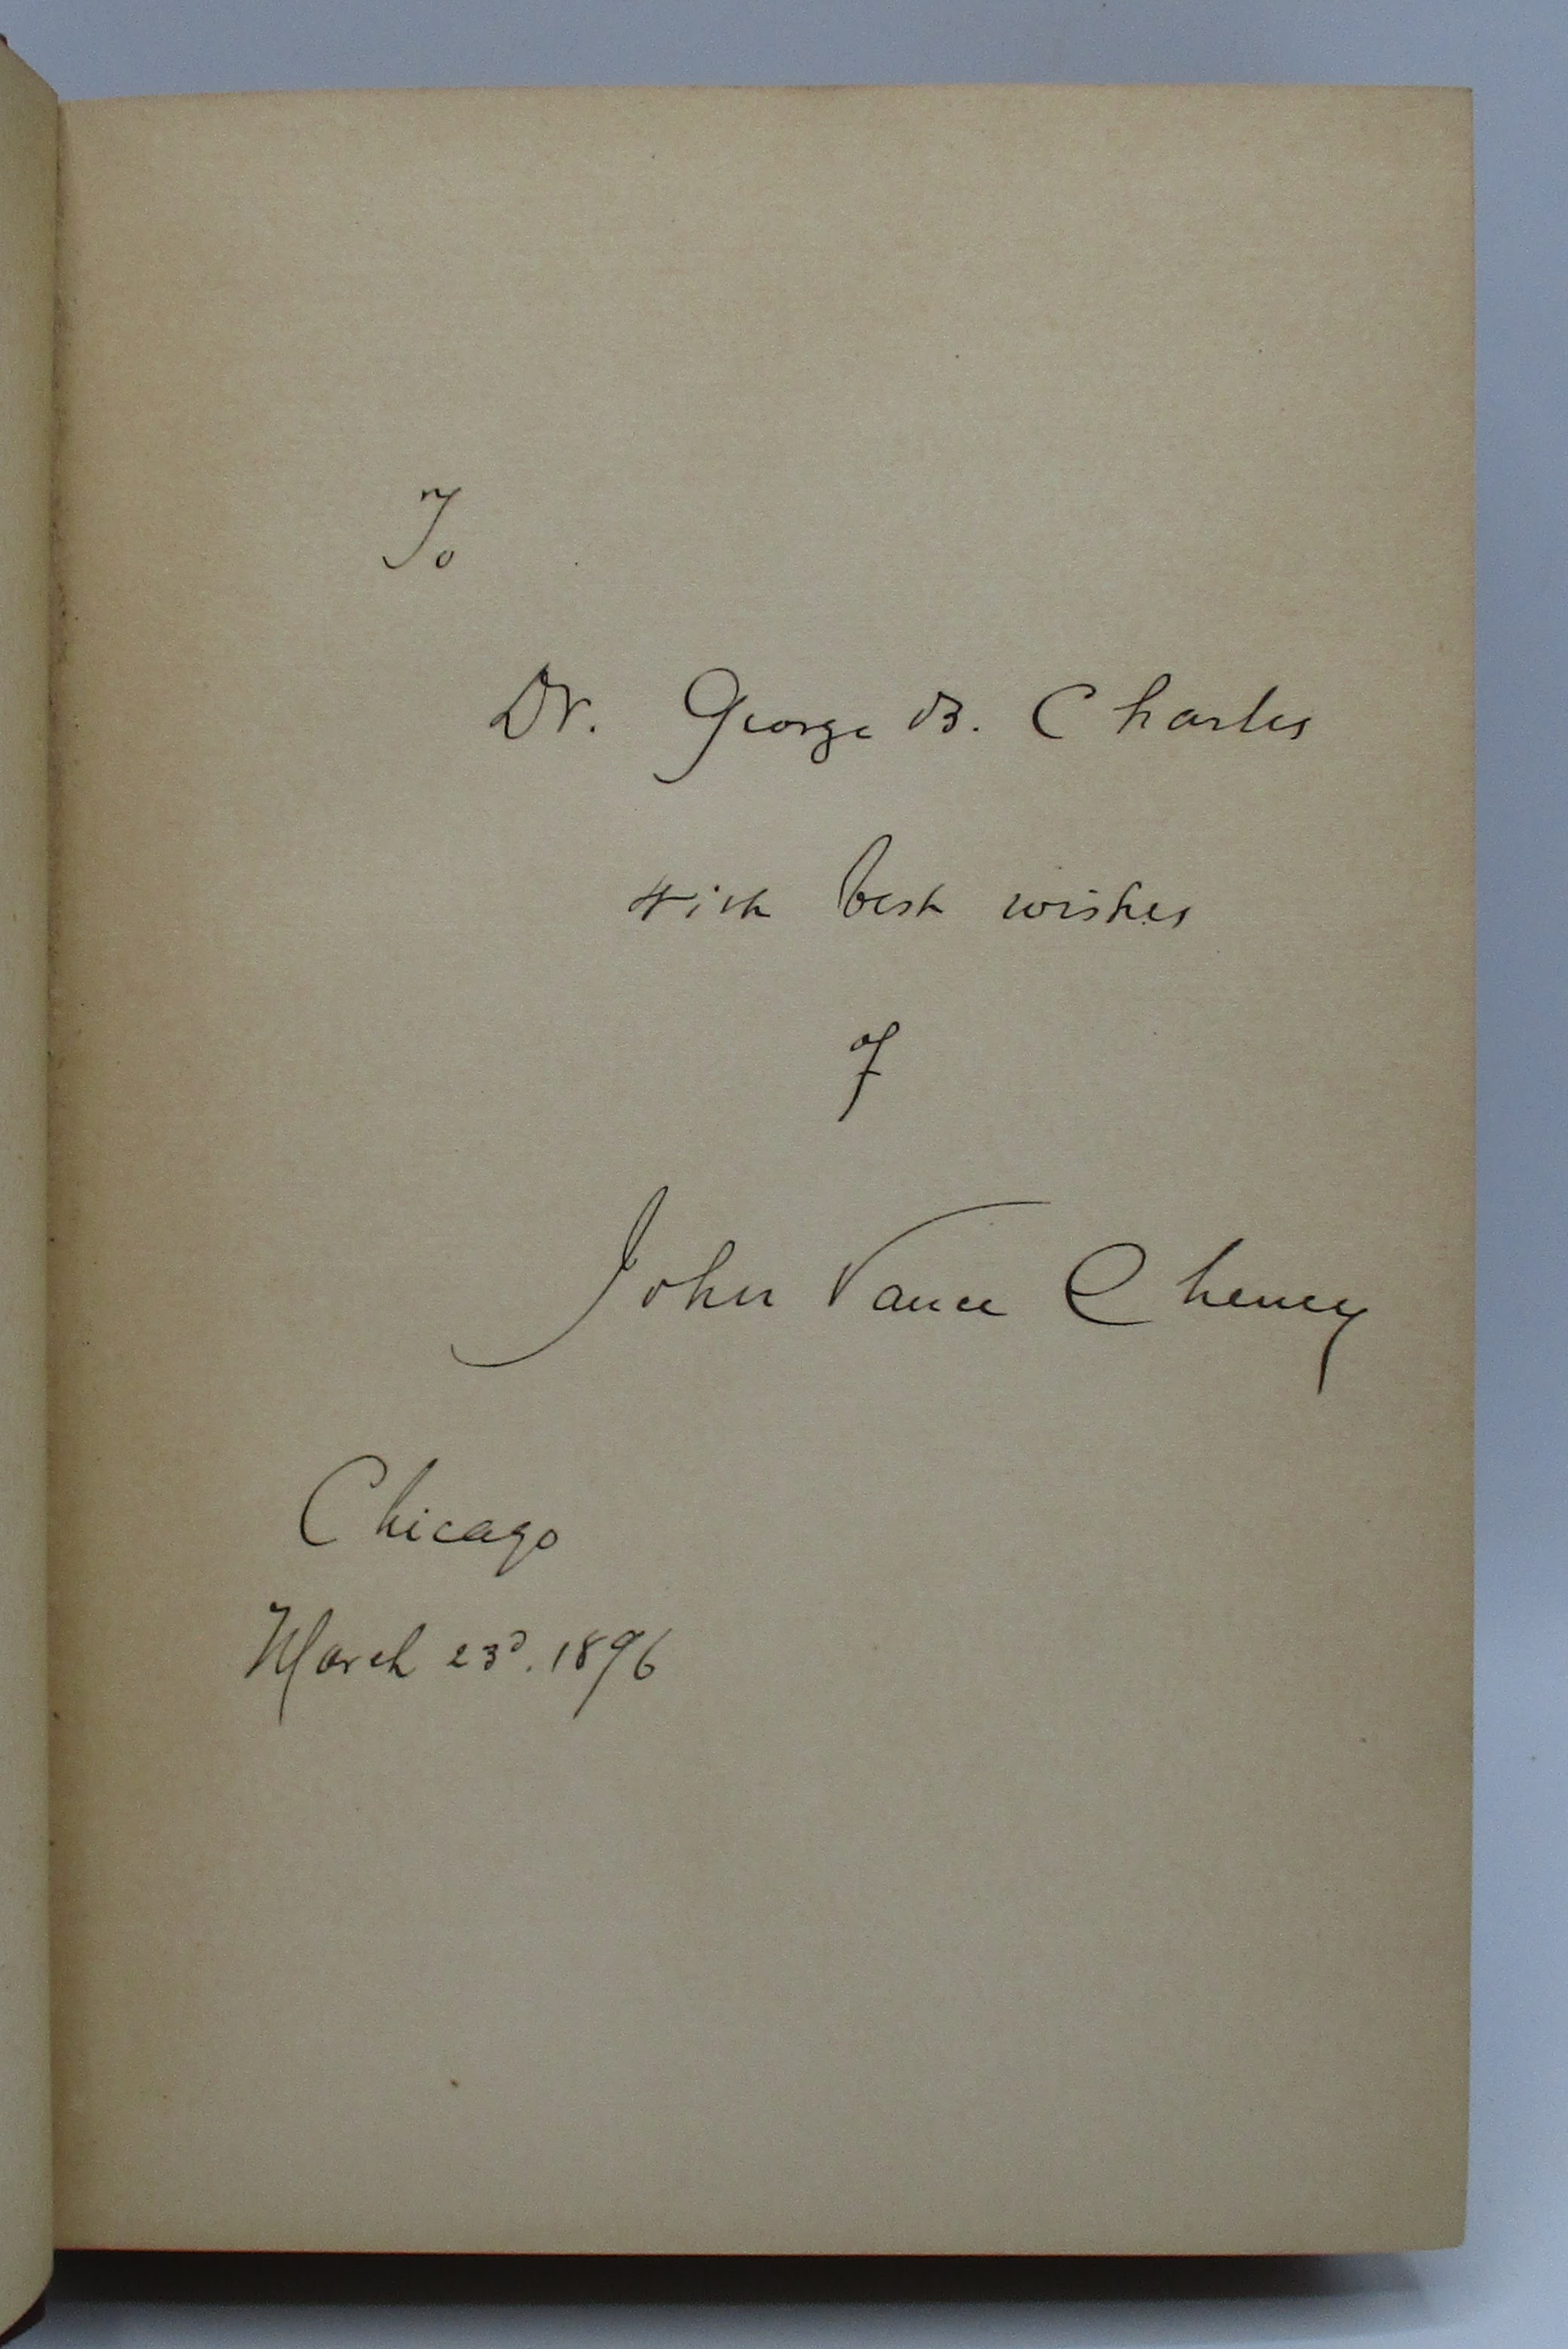 To
Dr. George B. Charles
with best wishes
of
John Vance Cheney
Chicago
March 23d. 1896